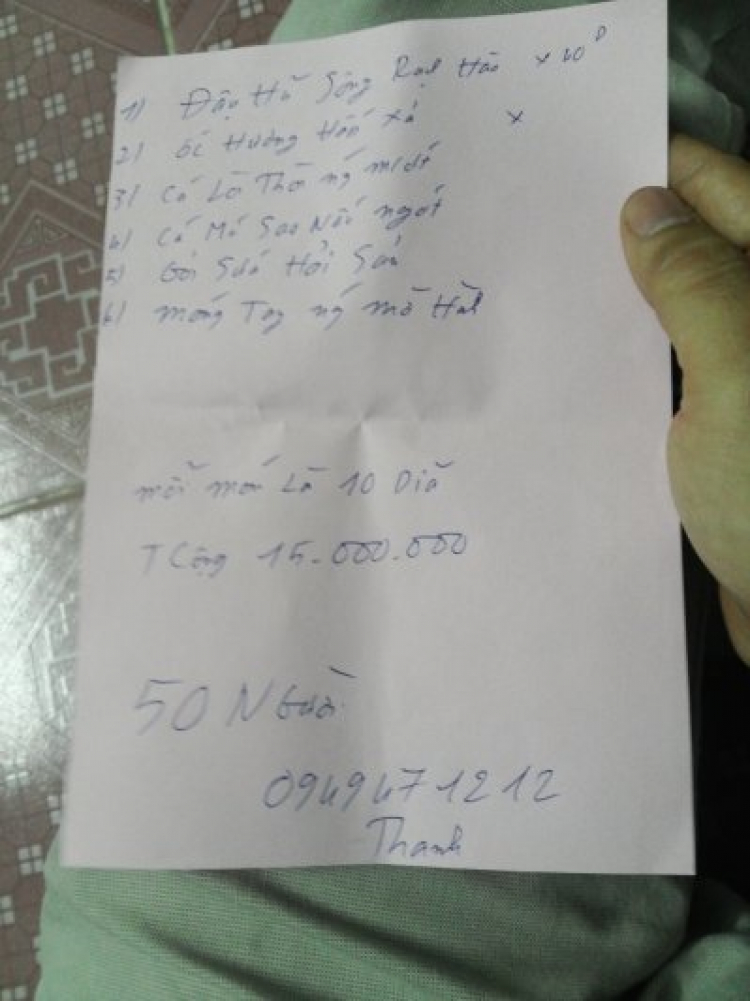 1) Đậu Hũ Sông Rạch Hào x 10 D
2) Ốc Hương Hấp Xả x
3) Cá Lồi Thòi
4) Cá Mú Sao Nấu ngót
5) Gỏi Sứa Hải Sản
6) móng Tay mỡ Hành
mỗi món Là 10 Dĩa
T Cộng 15.000.000
50 Người
0949471212
Thanh